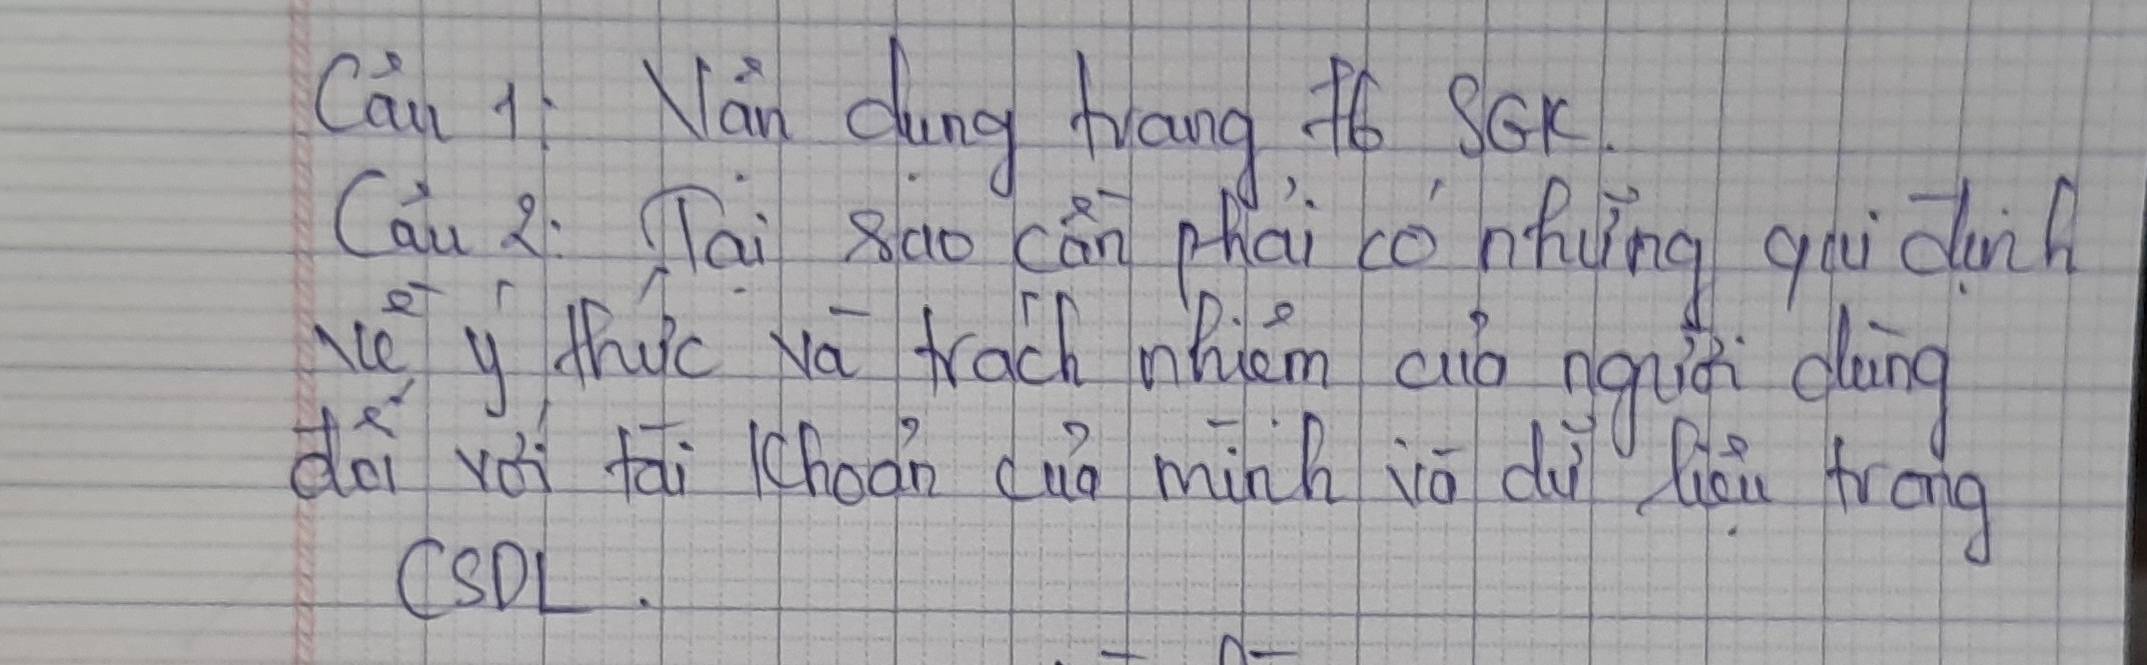 Câu 1: Vận dụng trang 76 SGK.
Câu 2: Tại sao cần phải có những qui định
về ý thức và trách nhiệm của người dùng
đối với tài khoản của mình và dữ liệu trong
CSDL.